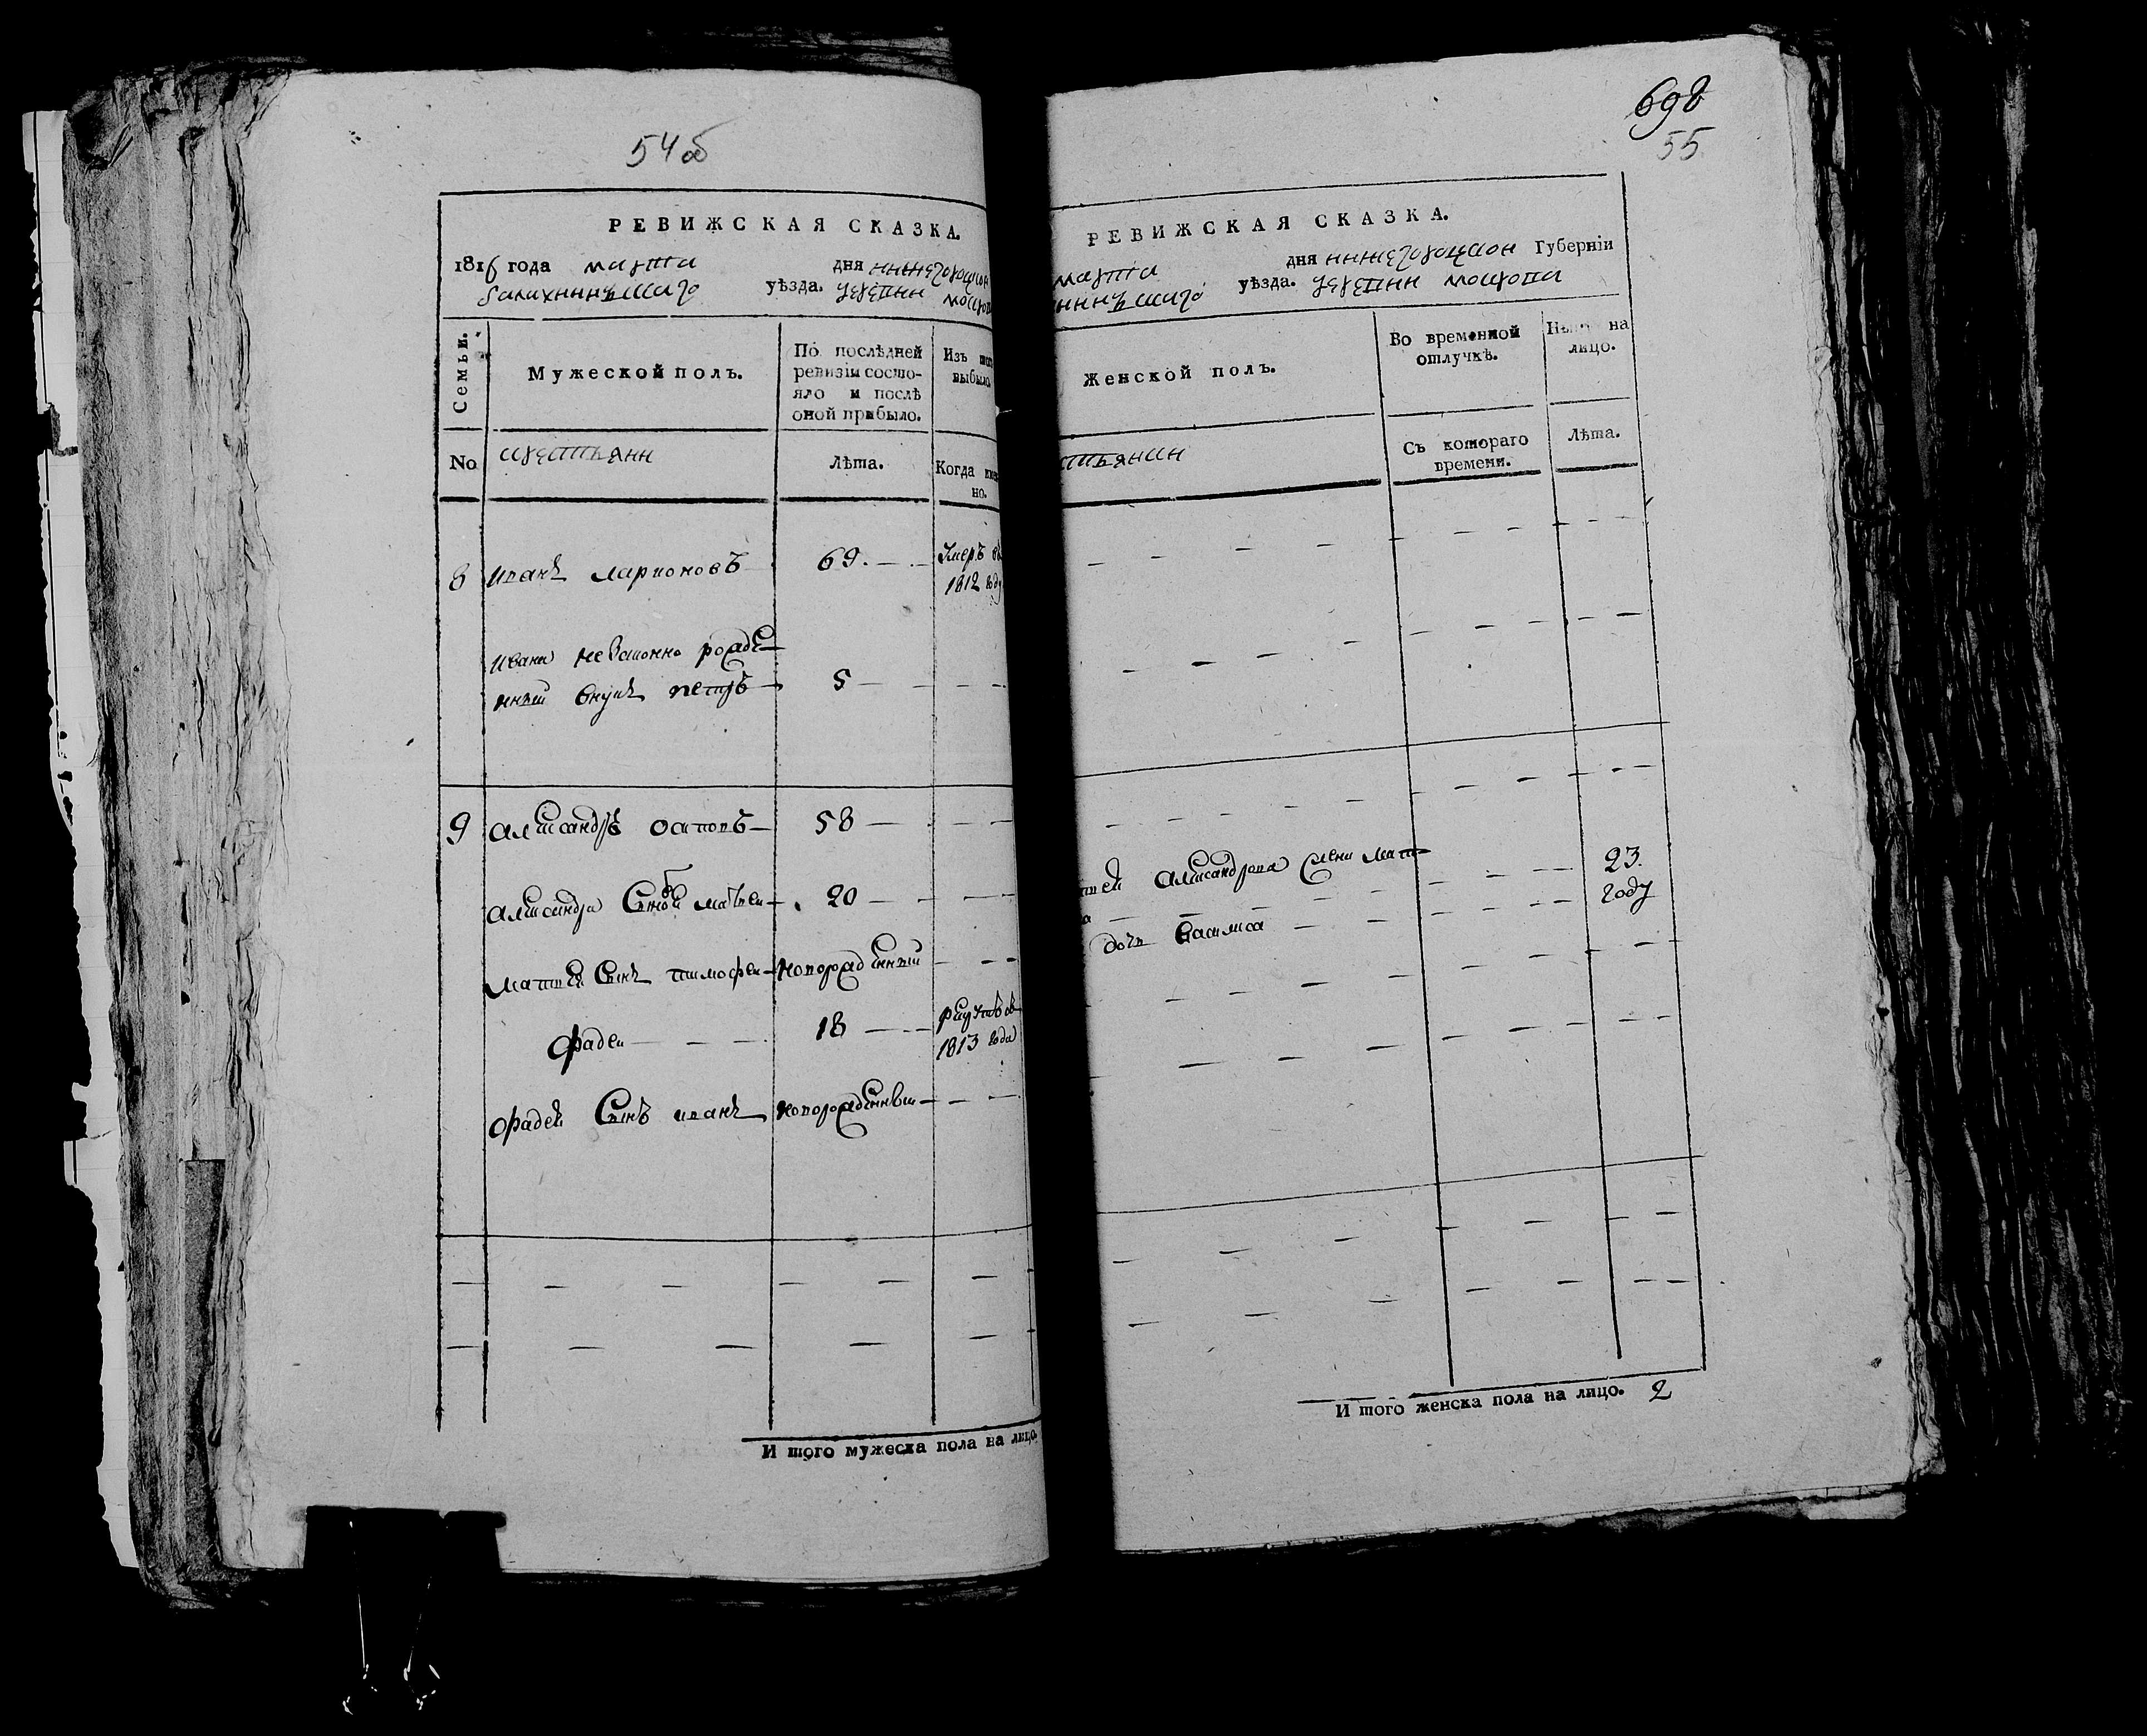 54 об
РЕВИЖСКАЯ СКАЗКА.
1816 года марта дня нижегородской
балахнинскаго уѣзда. деревни
Семьи.
Мужеской полъ.
По послѣдней ревизіи состо-
яло и послѣ
оной прибыло.
Изъ того
выбыло
No крестьяне
Лѣта.
Когда име
но.
8 иванъ ларионовъ 69. Умеръ въ
1812 году
ивана незаконно рожде-
нный внукъ петръ 5
9 александръ осиповъ 58
александра Сынъ матвеи 20
матвея Сынъ тимофеи новорожденныи
фадеи 18 рекрутъ въ
1813 года
фадея Сынъ иванъ новорожденныи
И того мужеска пола на лицо.
698
55
РЕВИЖСКАЯ СКАЗКА.
марта дня нижегородской Губерніи
уѣзда. деревни
Женской полъ.
Во временной
отлучкѣ.
на
лицо.
Съ котораго
времени.
Лѣта.
александрова 23.
дочь василиса году
И того женска пола на лицо. 2